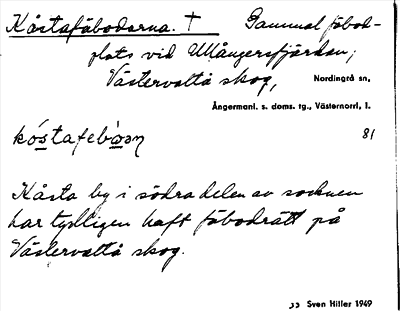 Kåstafäbodarna. † Gammal fäbod-
plats vid Ullångersfjärden;
Västervattå skog,
Nordingrå sn,
Ångermanl. s. doms. tg., Västernorrl. l.
81
Kåsta by i södra delen av socknen
har tydligen haft fäbodrätt på
Västervattå skog.
Sven Hiller 1949